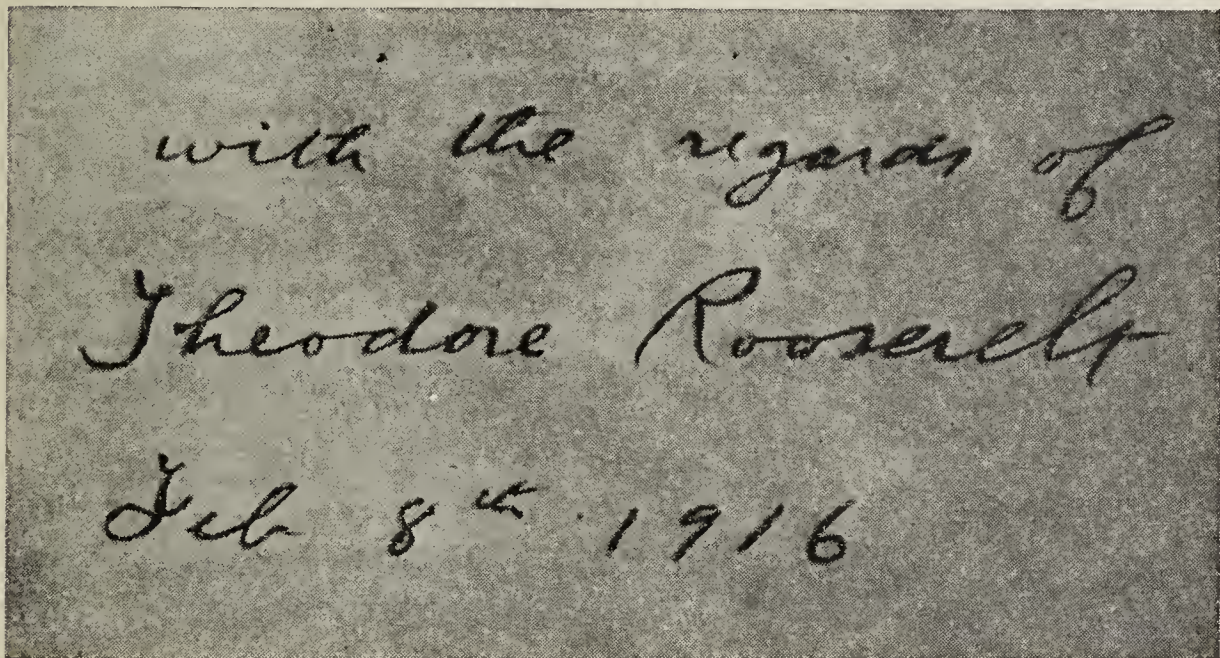 with the regards of
Theodore Roosevelt
Feb 8th 1916